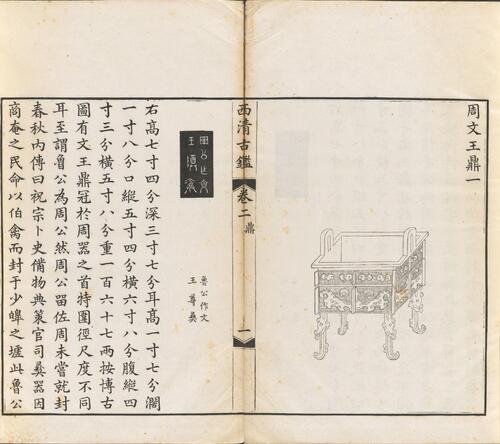 周文王鼎一
西清古鑑
卷二
鼎
一
魯公作文
王尊彝
右高七寸四分深三寸七分耳高一寸七分濶
一寸八分口縱五寸四分橫六寸八分腹縱四
寸三分橫五寸八分重一百六十七兩按博古
圖有文王鼎冠於周器之首特圍徑尺度不同
耳至謂魯公為周公然周公留佐周未嘗就封
春秋內傳曰祝宗卜史備物典策官司彝器因
商奄之民命以伯禽而封于少皞之墟此魯公